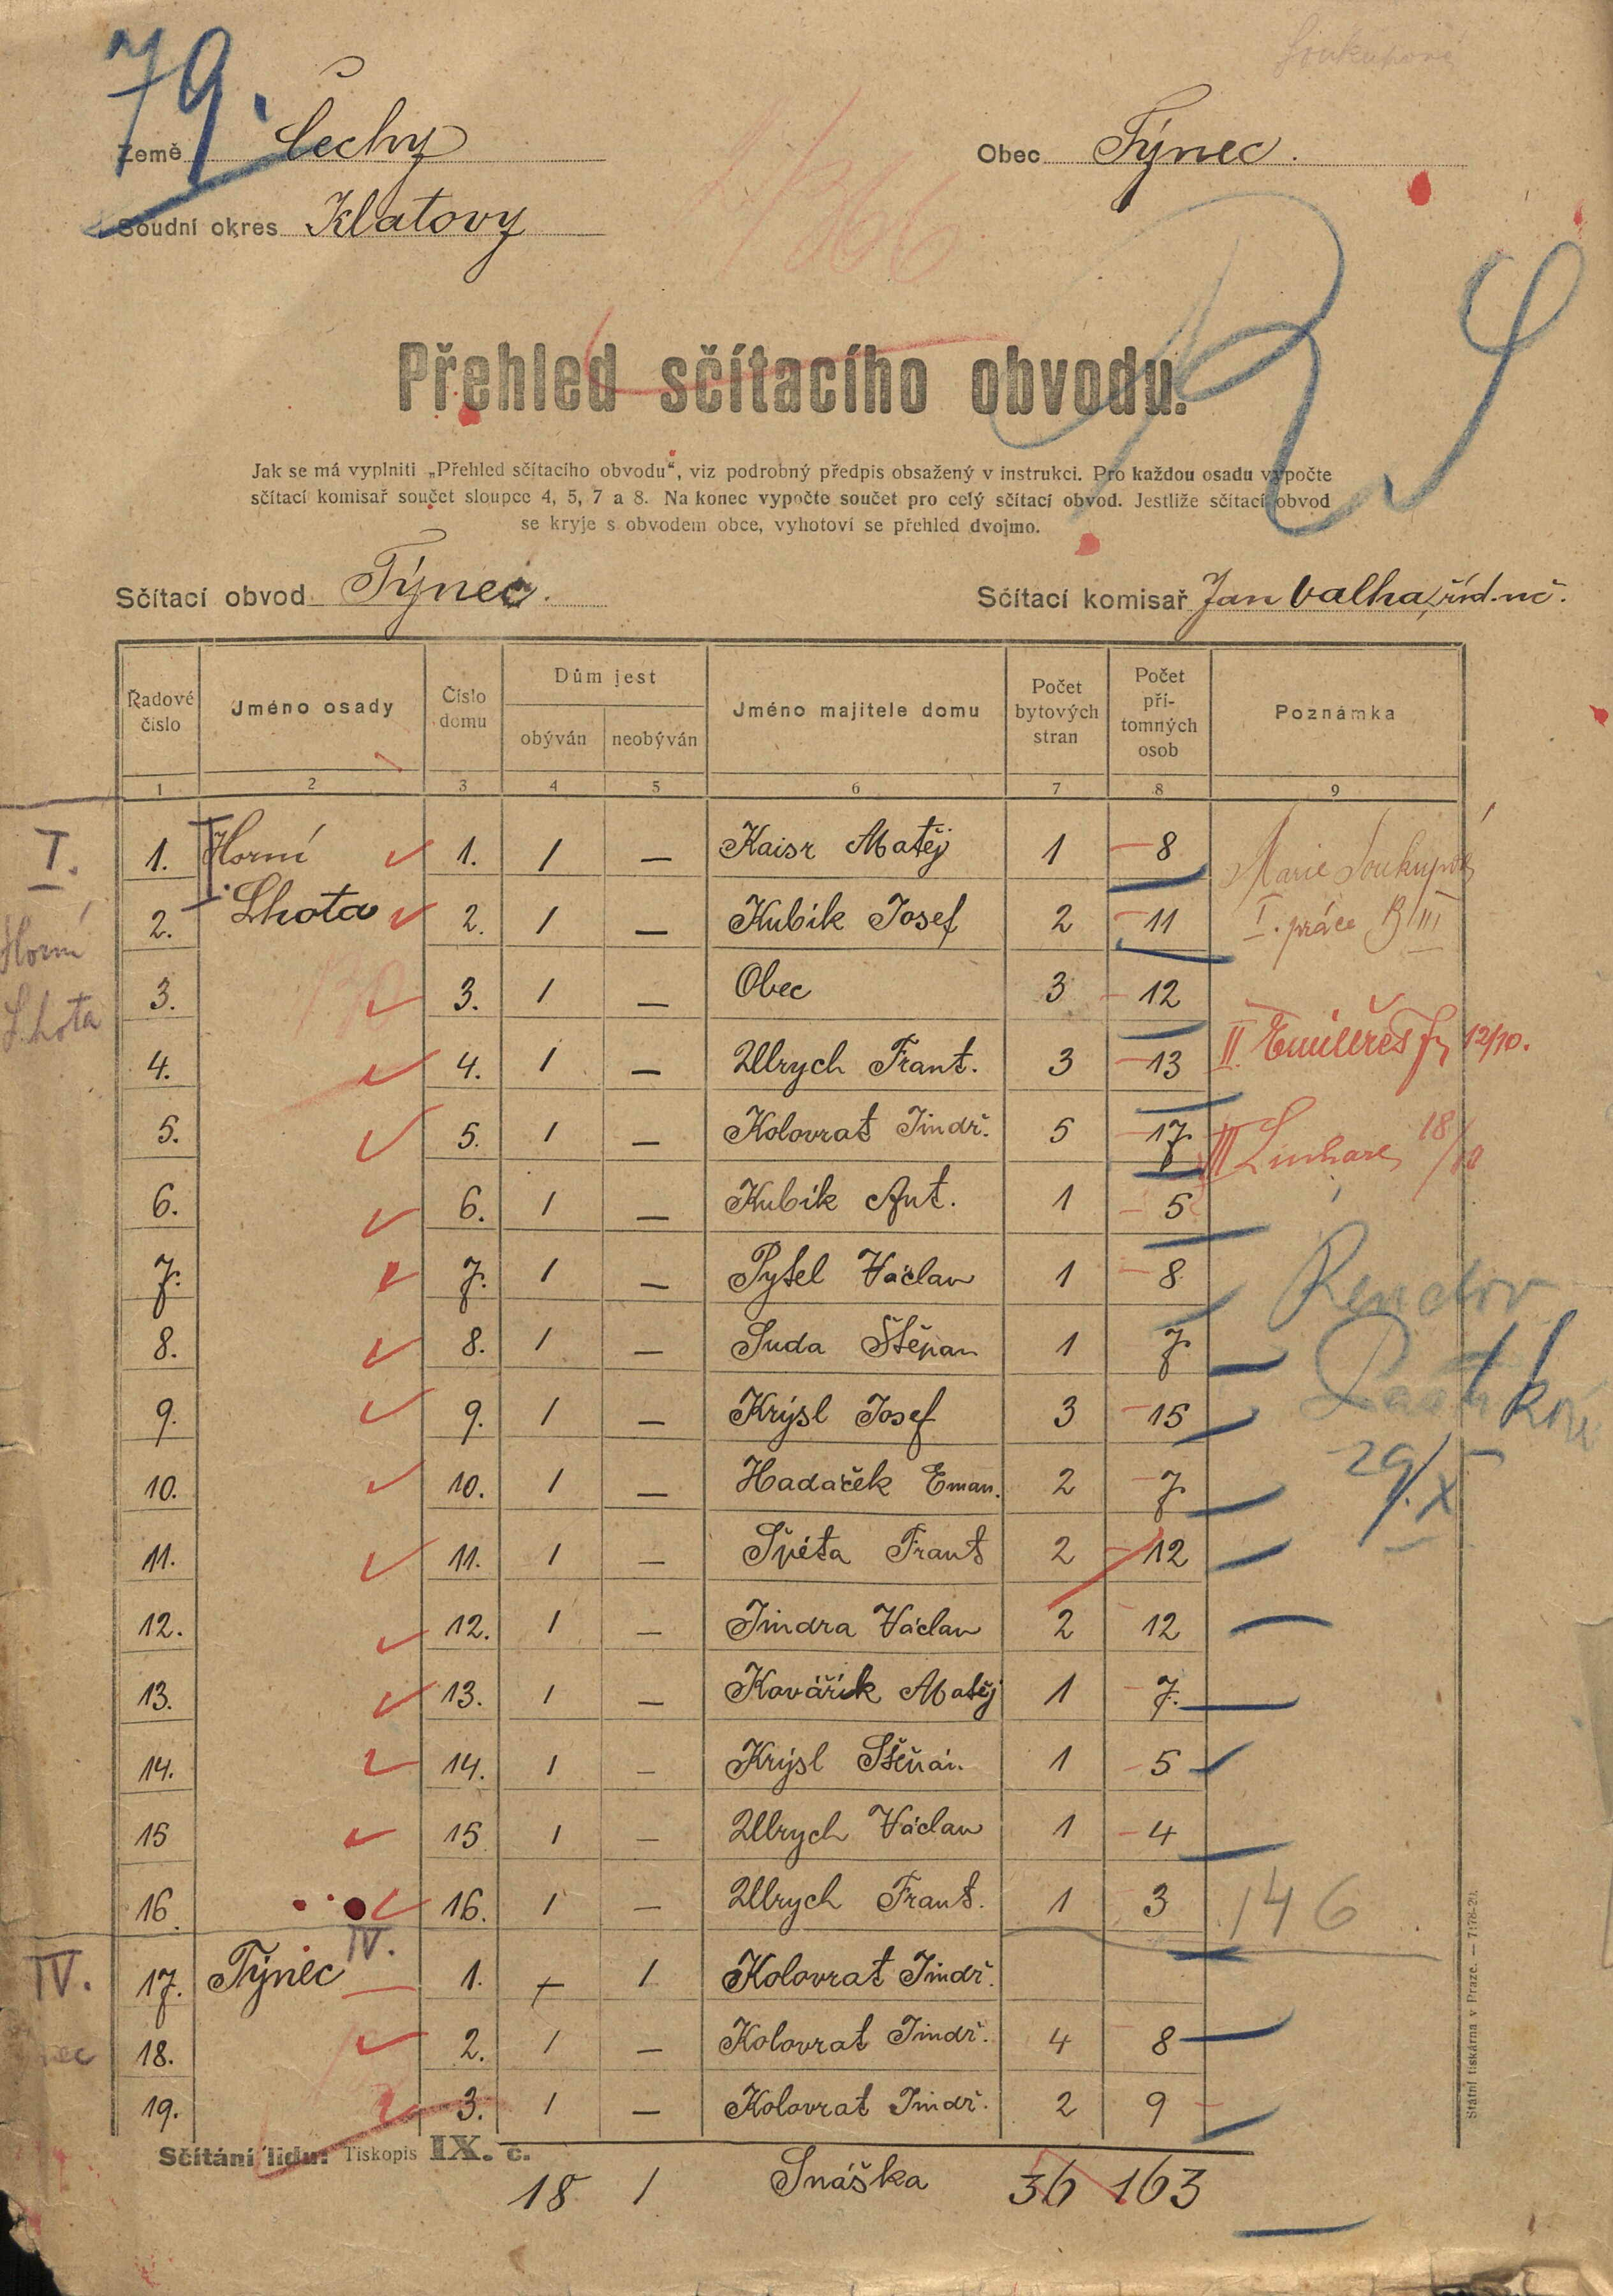 79.
Země Čechy
Obec Týnec.
Soudní okres Klatovy
Přehled sčítacího obvodu.
Jak se má vyplniti „Přehled sčítacího obvodu“, viz podrobný předpis obsažený v instrukci. Pro každou osadu vypočte
sčítací komisař součet sloupce 4, 5, 7 a 8. Na konec vypočte součet pro celý sčítací obvod. Jestliže sčítací obvod
se kryje s obvodem obce, vyhotoví se přehled dvojmo.
Sčítací obvod Týnec.
Sčítací komisař Jan Valha, říd. uč.
Řadové číslo Jméno osady Číslo domu Dům jest obýván neobýván Jméno majitele domu Počet bytových stran Počet přítomných osob Poznámka
1 2 3 4 5 6 7 8 9
I. 1. Horní 1. 1 — Kaisr Matěj 1 8 Marie Soukupová
2. Lhota 2. 1 — Kubík Josef 2 11 I. práce B III
Horní
Lhota
3. 3. 1 — Obec 3 12
4. 4. 1 — Ulrych Frant. 3 13 II. 12/10.
5. 5. 1 — Kolovrat Jindř. 5 17 III Linhart 18/10
6. 6. 1 — Kubík Ant. 1 5
7. 7. 1 — Pytel Václav 1 8
8. 8. 1 — Suda Štěpan 1 7
9. 9. 1 — Krýsl Josef 3 15
10. 10. 1 — Hadáček Eman. 2 7 29/X
11. 11. 1 — Špéta Frant 2 12
12. 12. 1 — Jindra Václav 2 12
13. 13. 1 — Kovářík Matěj 1 7.
14. 14. 1 — Krýsl Štěpán. 1 5
15 15 1 — Ulrych Václav 1 4
16. 16. 1 — Ulrych Frant. 1 3 146
IV. 17. Týnec IV. 1. — 1 Kolovrat Jindř.
18. 2. 1 — Kolovrat Jindř. 4 8
19. 3. 1 — Kolovrat Jindř. 2 9
Sčítání lidu: Tiskopis IX. č.
18 1 Snáška 36 163
Státní tiskárna v Praze. — 7178-20.